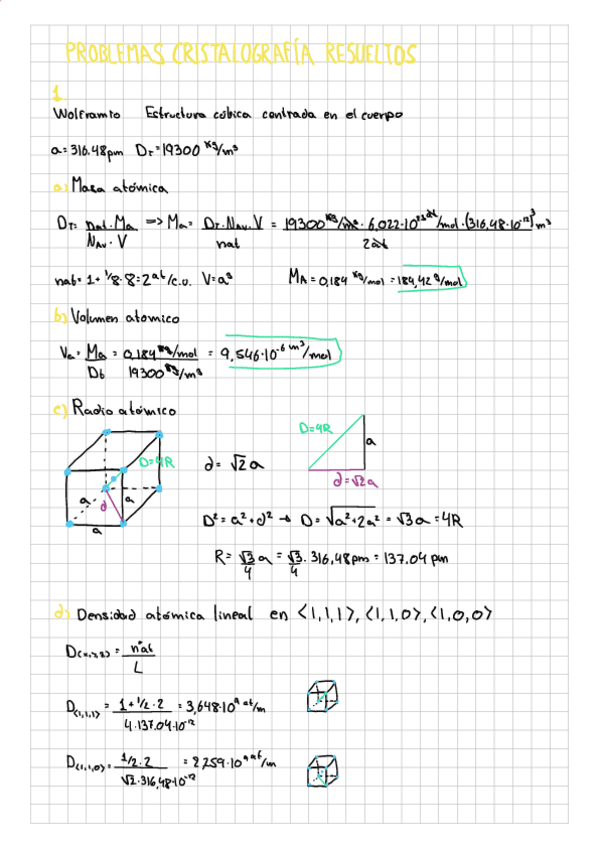 PROBLEMAS CRISTALOGRAFÍA RESUELTOS
1
Wolframio Estructura cúbica centrada en el cuerpo
a=316.48pm Dt=19300 kg/m³
a) Masa atómica
Dt = nat·Ma / NAV·V => Ma = Dt·NAV·V / nat = 19300 kg/m³ · 6,022·10²³ at/mol · (316,48·10⁻¹²)³ m³ / 2 at
nat = 1 + 1/8·8 = 2 at/c.u. V=a³ MA = 0,184 kg/mol = 184,42 g/mol
b) Volumen atómico
Va = Ma / Dt = 0,184 kg/mol / 19300 kg/m³ = 9,546·10⁻⁶ m³/mol
c) Radio atómico
D=4R
a
d=√2a
D=4R
a
d
a
a
d = √2 a
D² = a² + d² → D = √a²+2a² = √3 a = 4R
R = √3/4 a = √3/4 · 316,48 pm = 137.04 pm
d) Densidad atómica lineal en <1,1,1>, <1,1,0>, <1,0,0>
D(x,y,z) = nºat / L
D<1,1,1> = 1+1/2·2 / 4·137.04·10⁻¹² = 3,648·10⁹ at/m
D<1,1,0> = 1/2·2 / √2·316,48·10⁻¹² = 2,259·10⁹ at/m